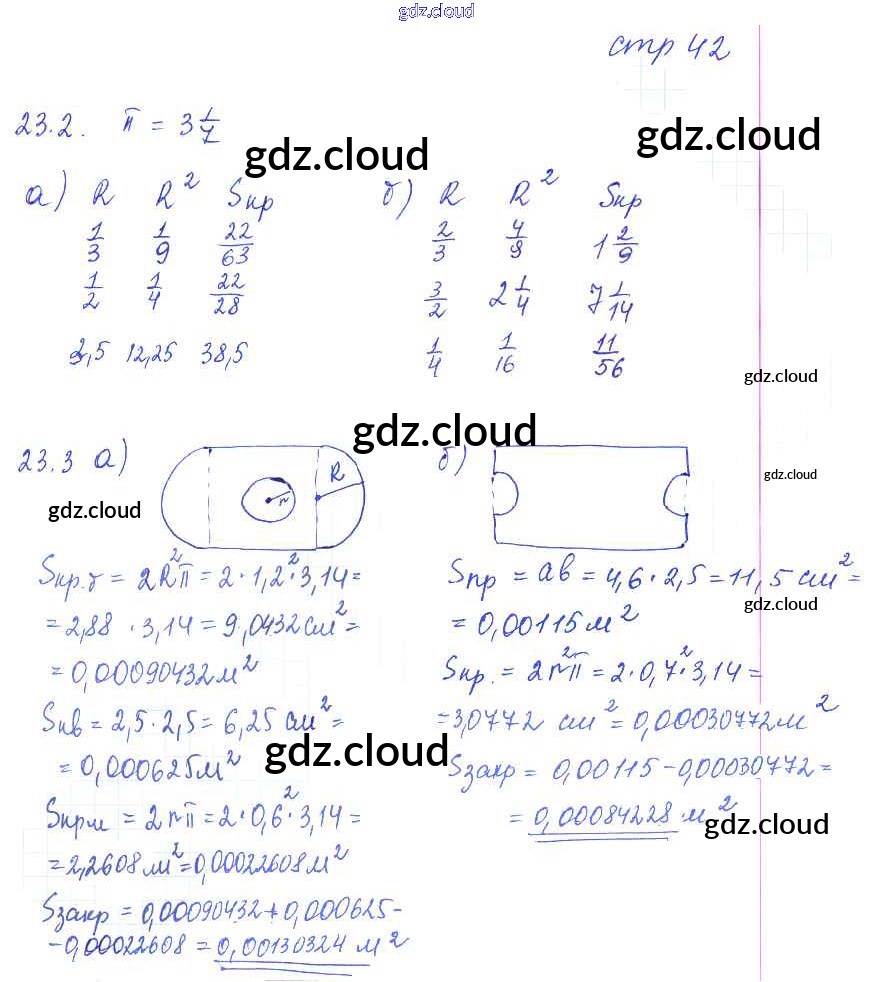 gdz.cloud
стр 42
23.2. π = 3 1/7
gdz.cloud
gdz.cloud
а) R R² Sкр
1/3 1/9 22/63
1/2 1/4 22/28
3,5 12,25 38,5
б) R R² Sкр
2/3 4/9 1 2/9
3/2 2 1/4 7 1/14
1/4 1/16 11/56
gdz.cloud
gdz.cloud
23.3 а) R r
б)
gdz.cloud
gdz.cloud
Sкр.б = 2R²π = 2·1,2²·3,14 =
= 2,88 · 3,14 = 9,0432 см² =
= 0,00090432 м²
Sкв = 2,5·2,5 = 6,25 см² =
= 0,000625 м²
gdz.cloud
Sкрм = 2rπ = 2·0,6²·3,14 =
= 2,2608 м² = 0,00022608 м²
Sзакр = 0,00090432 + 0,000625 -
- 0,00022608 = 0,00130324 м²
Sпр = ab = 4,6·2,5 = 11,5 см² =
gdz.cloud
= 0,00115 м²
Sкр. = 2r²π = 2·0,7²·3,14 =
= 3,0772 см² = 0,00030772 м²
Sзакр = 0,00115 - 0,00030772 =
= 0,00084228 м²
gdz.cloud